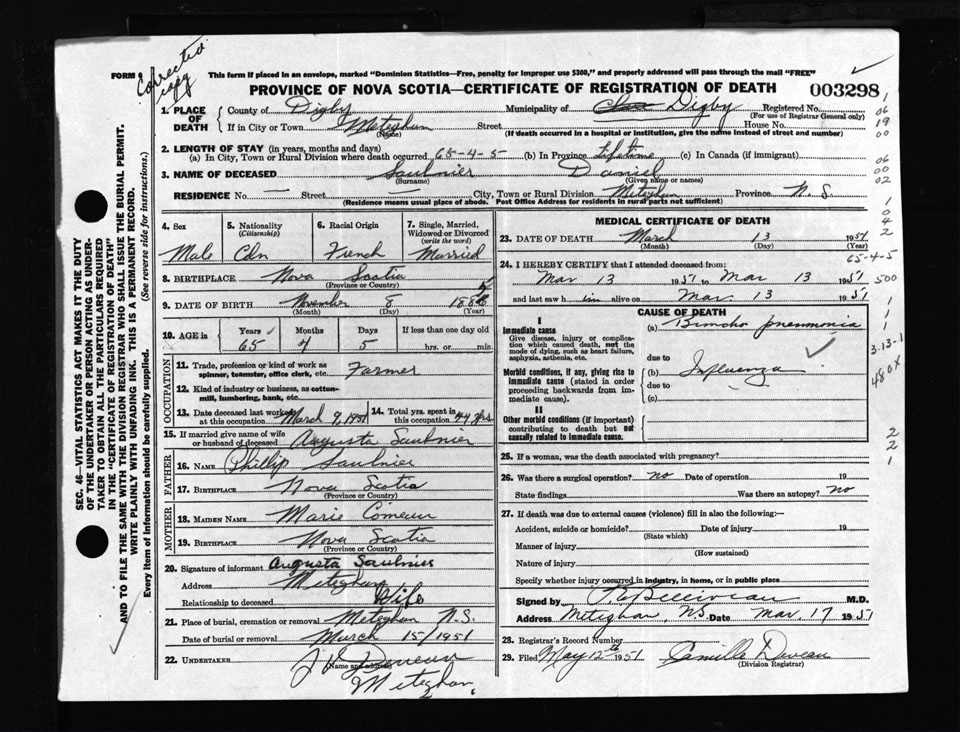 FORM 6
Corrected copy
This form if placed in an envelope, marked "Dominion Statistics—Free, penalty for improper use $300," and properly addressed will pass through the mail "FREE"
PROVINCE OF NOVA SCOTIA—CERTIFICATE OF REGISTRATION OF DEATH
003298
1. PLACE OF DEATH County of Digby Municipality of Clare Digby Registered No.
(For use of Registrar General only)
If in City or Town Meteghan Street House No.
(Name) (If death occurred in a hospital or institution, give the name instead of street and number)
2. LENGTH OF STAY (in years, months and days)
(a) In City, Town or Rural Division where death occurred 65-4-5 (b) In Province Lifetime (c) In Canada (if immigrant)
3. NAME OF DECEASED Saulnier Daniel
(Surname) (Given name or names)
RESIDENCE No. — Street City, Town or Rural Division Meteghan Province N.S.
(Residence means usual place of abode. Post Office Address for residents in rural parts not sufficient)
4. Sex 5. Nationality (Citizenship) 6. Racial Origin 7. Single, Married, Widowed or Divorced (write the word)
Male Cdn French Married
8. BIRTHPLACE Nova Scotia
(Province or Country)
9. DATE OF BIRTH November 8 188
(Month) (Day) (Year)
10. AGE in Years Months Days If less than one day old
65 4 5 hrs. or min.
OCCUPATION
11. Trade, profession or kind of work as spinner, teamster, office clerk, etc. Farmer
12. Kind of industry or business, as cotton-mill, lumbering, bank, etc.
13. Date deceased last worked at this occupation March 9, 1951 14. Total yrs. spent in this occupation 44 yrs
15. If married give name of wife or husband of deceased Augusta Saulnier
FATHER
16. NAME Phillip Saulnier
17. BIRTHPLACE Nova Scotia
(Province or Country)
MOTHER
18. MAIDEN NAME Marie Comeau
19. BIRTHPLACE Nova Scotia
(Province or Country)
20. Signature of informant Augusta Saulnier
Address Meteghan
Relationship to deceased Wife
21. Place of burial, cremation or removal Meteghan N.S.
Date of burial or removal March 15/1951
22. UNDERTAKER
(Name and address)
Meteghan
MEDICAL CERTIFICATE OF DEATH
23. DATE OF DEATH March 13 1951
(Month) (Day) (Year)
24. I HEREBY CERTIFY that I attended deceased from:
Mar 13 1951 to Mar 13 1951
and last saw h im alive on Mar. 13 1951
CAUSE OF DEATH
I
Immediate cause
Give disease, injury or complication which caused death, not the mode of dying, such as heart failure, asphyxia, asthenia, etc.
(a) Broncho pneumonia
due to
Morbid conditions, if any, giving rise to immediate cause (stated in order proceeding backwards from immediate cause).
(b) Influenza
due to
(c)
II
Other morbid conditions (if important) contributing to death but not causally related to immediate cause.
25. If a woman, was the death associated with pregnancy?
26. Was there a surgical operation? no Date of operation 19
State findings Was there an autopsy? no
27. If death was due to external causes (violence) fill in also the following:—
Accident, suicide or homicide? Date of injury 19
(State which)
Manner of injury
(How sustained)
Nature of injury
Specify whether injury occurred in industry, in home, or in public place
Signed by Belliveau M.D.
Address Meteghan, N.S. Date Mar. 17 1951
28. Registrar's Record Number
29. Filed May 12th 1951 Camille Deveau
(Division Registrar)
1
06
19
00
06
00
02
1
0
4
2
65-4-5
500
1
1
1
3-13-1
480X
2
2
1
SEC. 46—VITAL STATISTICS ACT MAKES IT THE DUTY
OF THE UNDERTAKER OR PERSON ACTING AS UNDER-
TAKER TO OBTAIN ALL THE PARTICULARS REQUIRED
IN THE "CERTIFICATE OF REGISTRATION OF DEATH"
AND TO FILE THE SAME WITH THE DIVISION REGISTRAR WHO SHALL ISSUE THE BURIAL PERMIT.
WRITE PLAINLY WITH UNFADING INK. THIS IS A PERMANENT RECORD.
Every item of information should be carefully supplied. (See reverse side for instructions.)